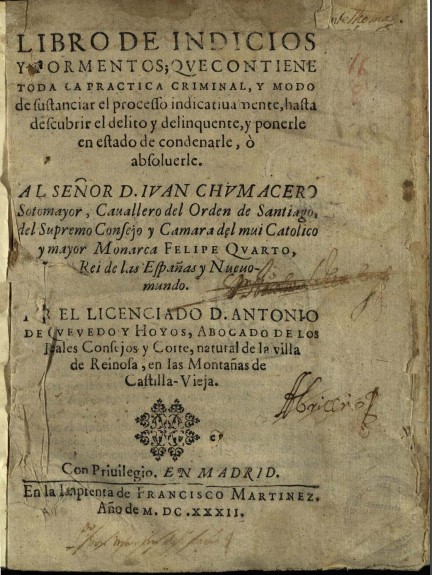 LIBRO DE INDICIOS
Y TORMENTOS; QVE CONTIENE
TODA LA PRACTICA CRIMINAL, Y MODO
de sustanciar el processo indicatiuamente, hasta
descubrir el delito y delinquente, y ponerle
en estado de condenarle, ò
absoluerle.
AL SEÑOR D. IVAN CHVMACERO
Sotomayor, Cauallero del Orden de Santiago,
del Supremo Consejo y Camara del mui Catolico
y mayor Monarca FELIPE QVARTO,
Rei de las Españas y Nueuo-
mundo.
POR EL LICENCIADO D. ANTONIO
DE QVEVEDO Y HOYOS, ABOGADO DE LOS
Reales Consejos y Corte, natural de la villa
de Reinosa, en las Montañas de
Castilla-Vieja.
Con Priuilegio. EN MADRID.
En la Imprenta de FRANCISCO MARTINEZ.
Año de M. DC. XXXII.